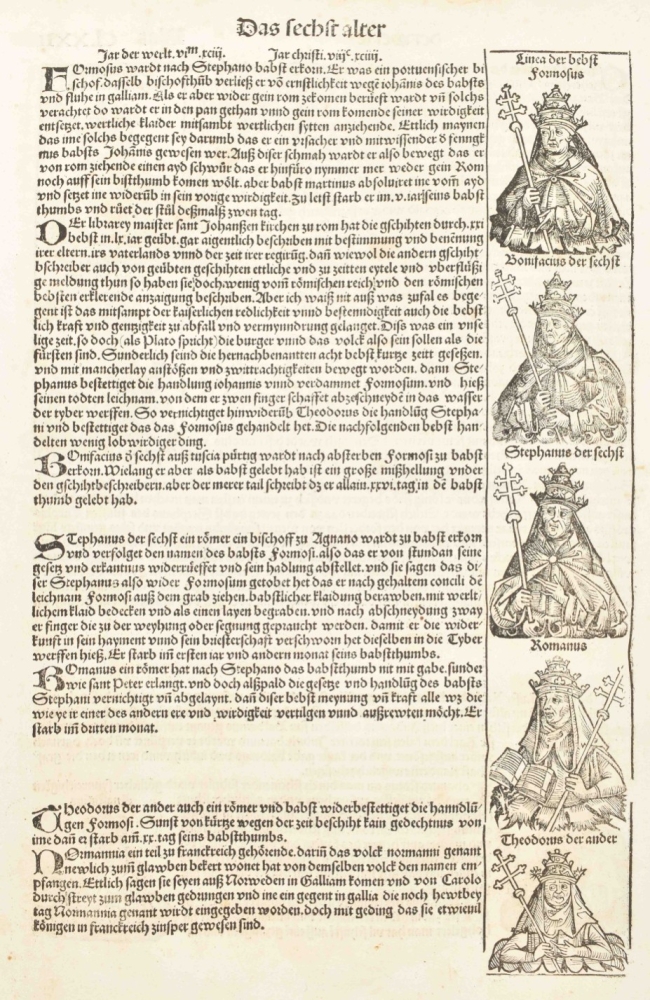 Das sechst alter
Jar der werlt. viͫ. xciij. Jar christi. viijᶜ. xciiij.
FOrmosus wardt nach Stephano babst erkorn. Er was ein portuensischer bi
schof. dasselb bischofthūb verließ er vō ernstlichkeit wegē iohānis des babsts
vnd fluhe in galliam. Als er aber wider gein rom zekomen berüeft wardt vñ solchs
verachtet do wardt er in den pan gethan vnnd gein rom komende seiner wirdigkeit
entsetzet. wertliche klaider mitsambt wertlichen sytten anziehende. Ettlich maynen
das ime solchs begegent sey darumb das er ein vrsacher vnd mitwissender ð fenngk
nus babsts Johānis gewesen wer. Auß diser schmah wardt er also bewegt das er
von rom ziehende einen ayd schwür das er hinfüro nymmer mer weder gein Rom
noch auff sein bistthumb komen wölt. aber babst martinus absoluiret ine vom̄ ayd
vnd setzet ine widerüb in sein vorige wirdigkeit. Zu letst starb er im. v. iar seins babst
thumbs vnd rüet der stůl deßmalß zwen tag.
DEr librarey maister sant Johanßen kirchen zu rom hat die gschihten durch. xxi
bebst in. lx. iar geübt. gar aigentlich beschriben mit bestimung vnd benēnung
irer eltern. irs vaterlands vnnd der zeit irer regirūg. dañ wiewol die andern gschiht-
bschreiber auch von geübten geschihten ettliche vnd zu zeitten eytele vnd vberflüßi
ge meldung thun so haben sie doch wenig vom̄ römischen reich vnd den römischen
bebsten erklerende anzaigung beschriben. Aber ich waiß nit auß was zufal es bege-
gent ist das mitsampt der kaiserlichen redlichkeit vnnd bestenndigkeit auch die bebst
lich kraft vnd gentzigkeit zu abfall vnd vermynndrung gelanget. Diß was ein vnse
lige zeit. so doch (als Plato spricht) die burger vnnd das volck also sein sollen als die
fürsten sind. Sunderlich seind die hernachbenantten acht bebst kurtze zeitt gesessen.
vnd mit mancherlay anstößen vnd zwittrachtigkeiten bewegt worden. dann Ste-
phanus bestettiget die handlung iohannis vnnd verdammet Formosum. vnd hieß
seinen todten leichnam. von dem er zwen finger schaffet abzeschneydē in das wasser
der tyber werffen. So vernichtiget hinwiderüb Theodorus die handlūg Stepha-
ni vnd bestettiget das das Formosus gehandelt het. Die nachfolgenden bebst han-
delten wenig lobwirdiger ding.
BOnifacius ð sechst auß tuscia pürtig wardt nach absterben Formosi zu babst
erkorn. Wielang er aber als babst gelebt hab ist ein große mißhellung vnder
den gschihtbeschreibern. aber der merer tail schreibt dz er allain. xxvi. tag in dē babst
thumb gelebt hab.
STephanus der sechst ein römer ein bischoff zu Agnano wardt zu babst erkorn
vnd verfolget den namen des babsts Formosi. also das er von stundan seine
gesetz vnd erkantnus widerrüeffet vnd sein hadlung abstellet. vnd sie sagen das di-
ser Stephanus also wider Formosum getobet het das er nach gehaltem concili dē
leichnam Formosi auß dem grab ziehen. babstlicher klaidung berawben. mit werlt
lichem klaid bedecken vnd als einen layen begraben. vnd nach abschneydung zway
er finger die zu der weyhung oder segnung gepraucht werden. damit er die wider-
kunft in sein hayment vnnd sein briesterschaft verschworn het dieselben in die Tyber
werffen hieß. Er starb im̄ ersten iar vnd andern monat seins babstthumbs.
ROmanus ein römer hat nach Stephano das babstthumb nit mit gabe. sunder
wie sant Peter erlangt. vnd doch alßpald die gesetze vnd handlūg des babsts
Stephani vernichtigt vñ abgelaynt. dañ diser bebst meynung vñ kraft alle wz die
wie ye ir einer des andern ere vnd wirdigkeit vertilgen vnnd außrewten möcht. Er
starb im̄ dritten monat.
Theodorus der ander auch ein römer vnd babst widerbestettiget die hanndlū-
gen Formosi. Sunst von kürtze wegen der zeit beschiht kain gedechtnus von
ime dañ er starb am. xx. tag seins babstthumbs.
NOrmannia ein teil zu franckreich gehörende. dariñ das volck normanni genant
newlich zum̄ glawben bekert wonet hat von demselben volck den namen em-
pfangen. Ettlich sagen sie seyen auß Norweden in Galliam komen vnd von Carolo
durch streyt zum glawben gedrungen vnd ine ein gegent in gallia die noch hewtbey
tag Normannia genant wirdt eingegeben worden. doch mit geding das sie etwieuil
königen in franckreich zinsper gewesen sind.
Linea der bebst
Formosus
Bonifacius der sechst
Stephanus der sechst
Romanus
Theodorus der ander